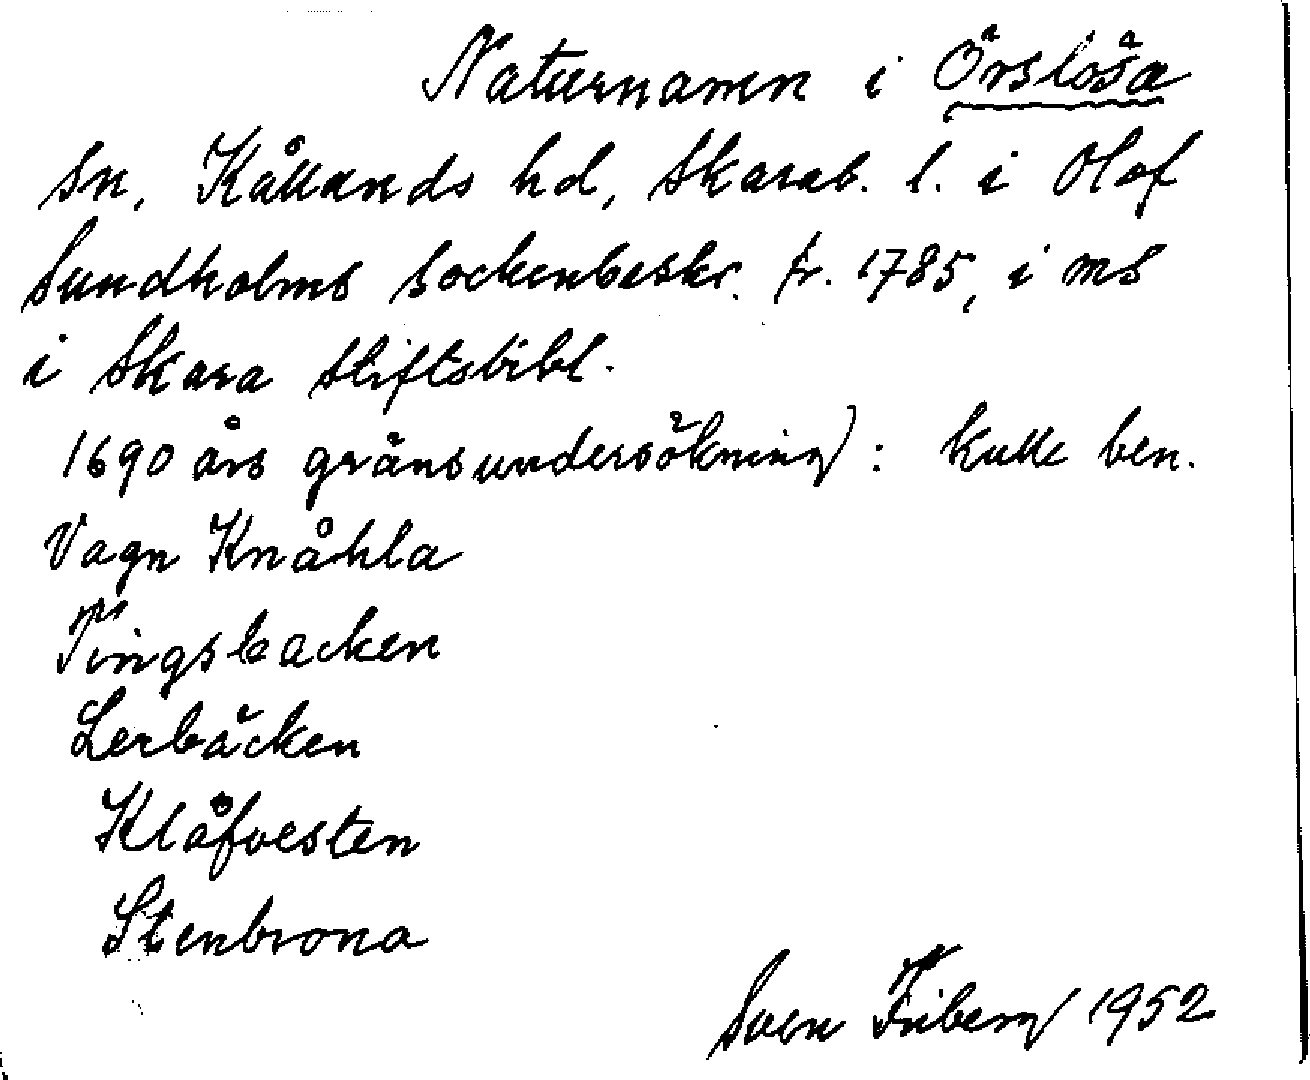 Naturnamn i Örslösa
sn, Kållands hd, Skarab. l. i Olof
Sundholms sockenbeskr. fr. 1785, i ms
i Skara stiftsbibl.
1690 års gränsundersökning: kulle ben.
Vagn Knåhla
Tingsbacken
Lerbäcken
Klåfvesten
Stenbrona
Sven Friberg 1952